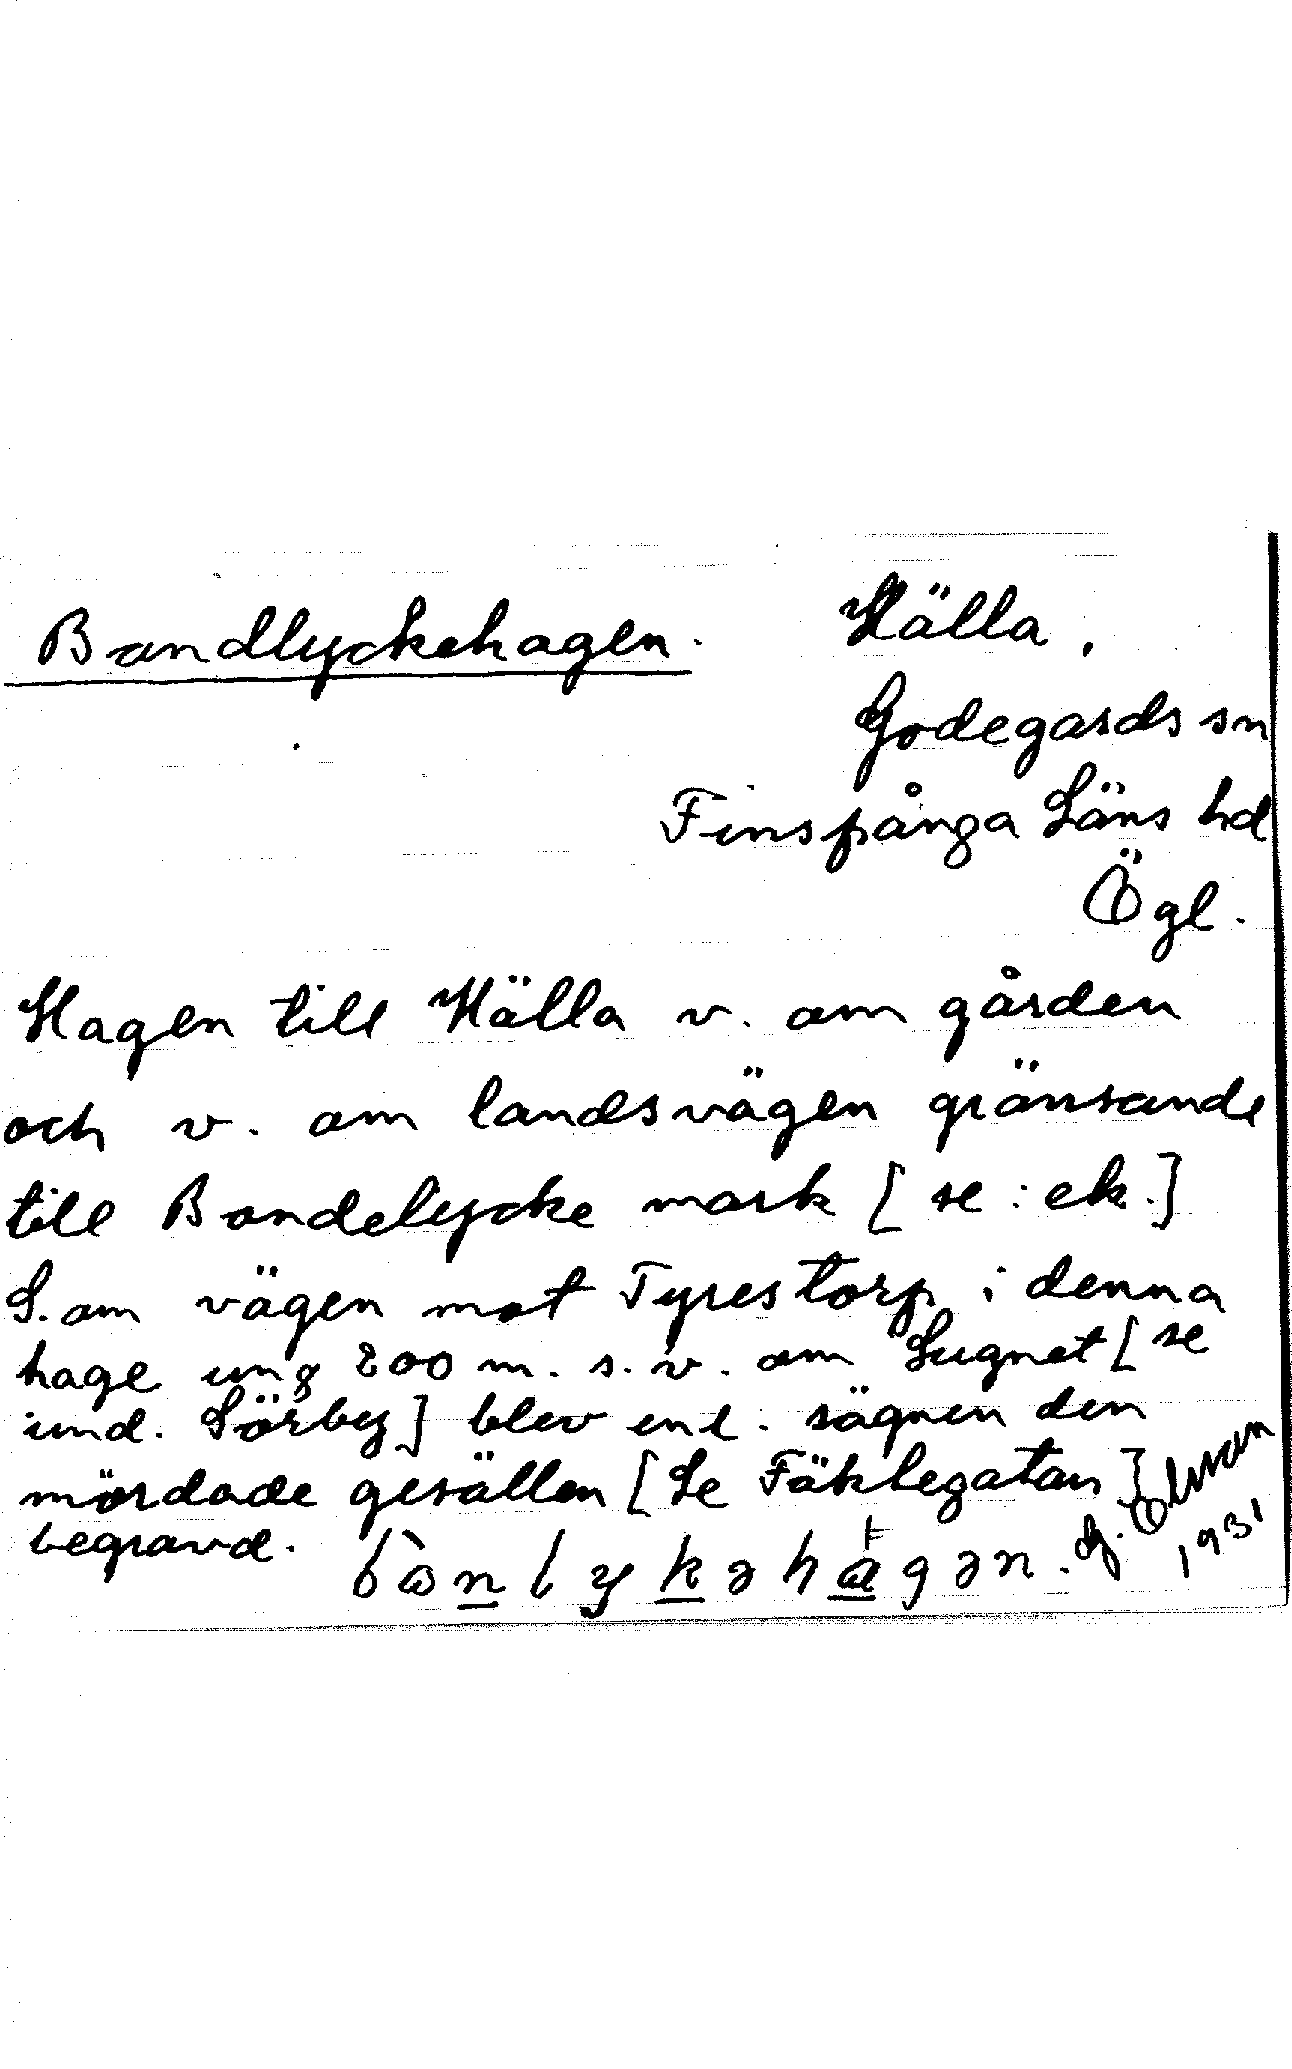 Bondlyckehagen. Hälla,
Godegards sn
Finspånga Läns hd
Ögl.
Hagen till Hälla v. om gården
och v. om landsvägen gränsande
till Bondelycke mark [se: ek.]
S. om vägen mot Tyrestorp i denna
hage ung 200 m. s. v. om Lugnet [se
und. Sörby] blev enl. sägnen den
mördade gesällen [Se Fäklegatan]
begravd.
G. Elvson
1931